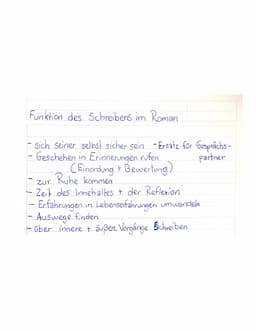 Funktion des Schreibens im Roman
- sich seiner selbst sicher sein - Ersatz für Gesprächs-
- Geschehen in Erinnerungen rufen partner
(Einordung + Bewertung)
- zur Ruhe kommen
- Zeit des Innehaltes + der Reflexion
- Erfahrungen in Lebenserfahrungen umwandeln
- Auswege finden
- über innere + äußere Vorgänge Schreiben